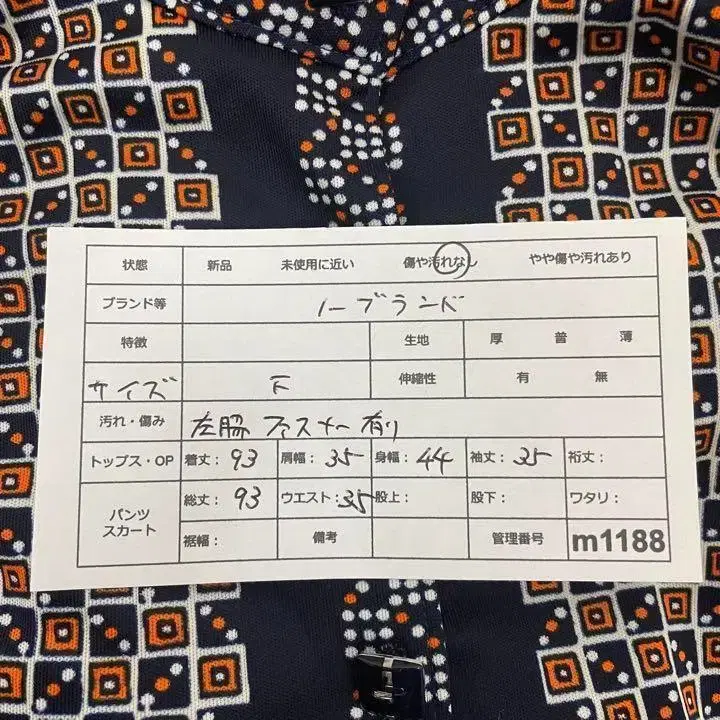 状態 新品 未使用に近い 傷や汚れなし やや傷や汚れあり
ブランド等 ノーブランド
特徴 生地 厚 普 薄
サイズ F 伸縮性 有 無
汚れ・傷み 左脇 ファスナー有り
トップス・OP 着丈：93 肩幅：35 身幅：44 袖丈：35 裄丈：
パンツ スカート 総丈：93 ウエスト：35 股上： 股下： ワタリ：
裾幅： 備考 管理番号 m1188